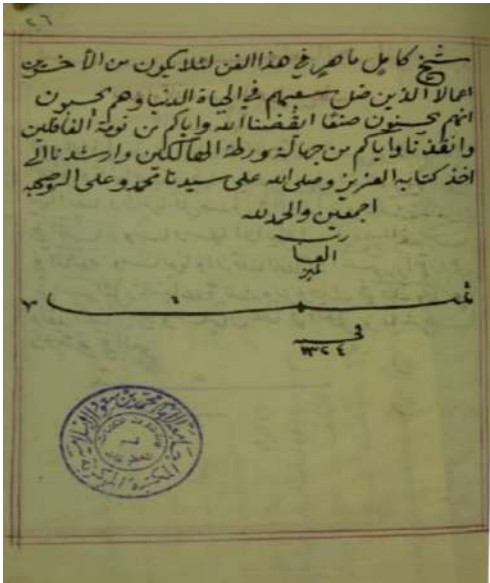 ٢٦
شيخ كامل ماهر في هذا الفن لئلا يكون من الأخسرين
اعمالا الذين ضل سعيهم في الحياة الدنيا وهم يحسبون
انهم يحسنون صنعا ايقضنا الله واياكم من نومة الغافلين
وانقذنا واياكم من جهالة ورطة الهالكين وارشدنا الى
اخذ كتابه العزيز وصلى الله على سيدنا محمد وعلى اله وصحبه
اجمعين والحمد لله
رب
العا
لمين
تمت
في
١٣٢٤
جامعة الإمام محمد بن سعود الإسلامية
المكتبة المركزية